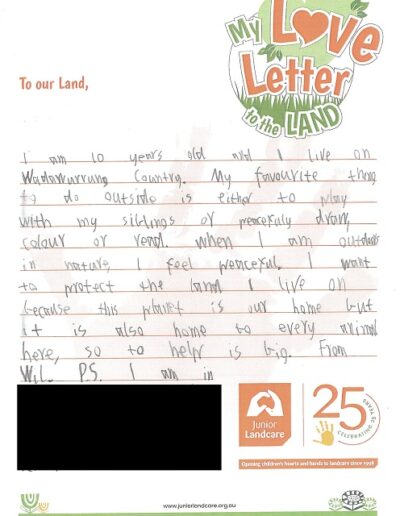 My Love
Letter
to the LAND
To our Land,
I am 10 years old and I live on
Wadawurrung Country. My favourite thing
to do outside is either to play
with my siblings or peacefuly draw,
colour or read. When I am outdoors
in nature, I feel peaceful. I want
to protect the land I live on
because this planet is our home but
it is also home to every animal
here, so to help is big. From
Wil. P.S. I am in
Junior
Landcare
25
CELEBRATING 25 YEARS
Opening children's hearts and hands to landcare since 1998
www.juniorlandcare.org.au